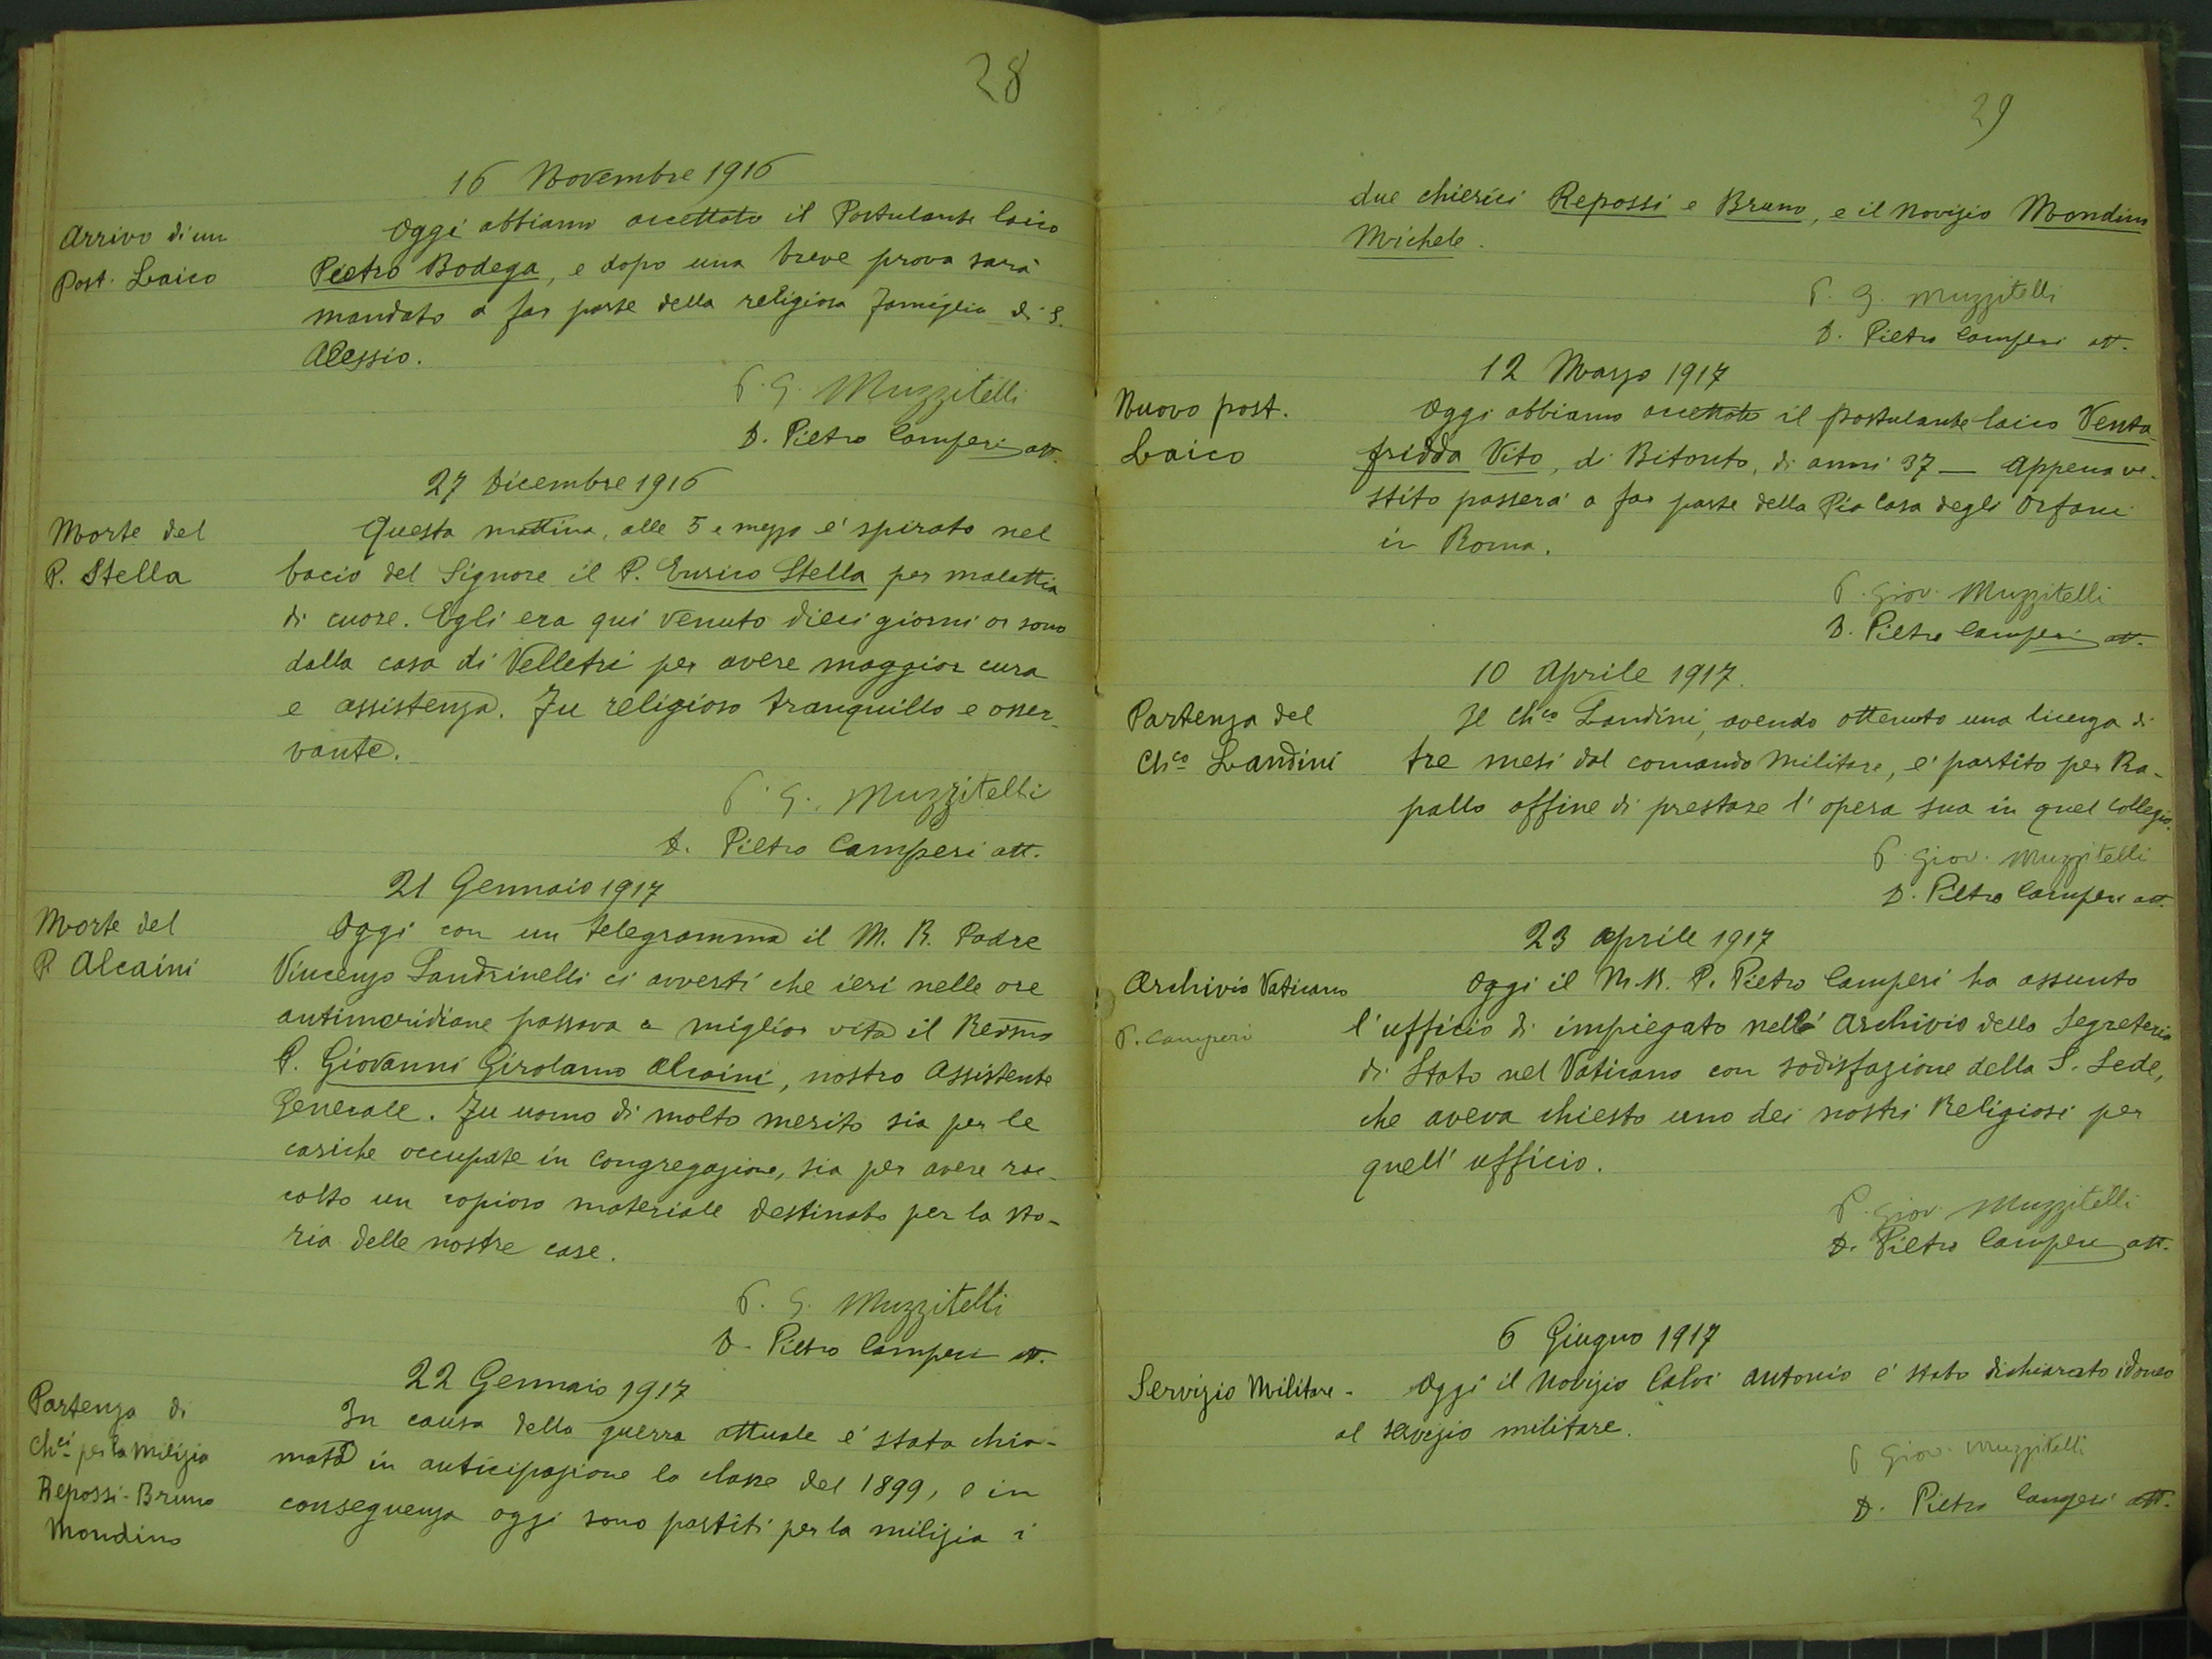 28
16 Novembre 1916
Arrivo di un
Post. Laico
Oggi abbiamo accettato il Postulante laico
Pietro Bodega, e dopo una breve prova sarà
mandato a far parte della religiosa famiglia di S.
Alessio.
P. G. Muzzitelli
D. Pietro Camperi att.
27 Dicembre 1916
Morte del
P. Stella
Questa mattina, alle 5 e mezzo e' spirato nel
bacio del Signore il P. Enrico Stella per malattia
di cuore. Egli era qui venuto dieci giorni or sono
dalla casa di Velletri per avere maggior cura
e assistenza. Fu religioso tranquillo e osser-
vante.
P. G. Muzzitelli
D. Pietro Camperi att.
21 Gennaio 1917
Morte del
P. Alcaini
Oggi con un telegramma il M. R. Padre
Vincenzo Landrinelli ci avvertì che ieri nelle ore
antimeridiane passava a miglior vita il Rev̅mo
P. Giovanni Girolamo Alcaini, nostro Assistente
Generale. Fu uomo di molto merito sia per le
cariche occupate in Congregazione, sia per avere rac-
colto un copioso materiale destinato per la sto-
ria delle nostre case.
P. G. Muzzitelli
D. Pietro Camperi att.
22 Gennaio 1917
Partenza di
Ch.ci per la milizia
Repossi-Bruno
Mondino
In causa della guerra attuale e' stata chia-
mata in anticipazione la classe del 1899, e in
conseguenza oggi sono partiti per la milizia i
29
due chierici Repossi e Bruno, e il novizio Mondino
Michele.
P. G. Muzzitelli
D. Pietro Camperi att.
12 Marzo 1917
Nuovo post.
Laico
Oggi abbiamo accettato il postulante laico Venta-
fridda Vito, di Bitonto, di anni 37 — Appena ve-
stito passerà a far parte della Pia Casa degli Orfani
in Roma.
P. Giov. Muzzitelli
D. Pietro Camperi att.
10 Aprile 1917.
Partenza del
Ch.co Landini
Il Ch.co Landini, avendo ottenuto una licenza di
tre mesi dal comando militare, e' partito per Ra-
pallo affine di prestare l'opera sua in quel Collegio.
P. Giov. Muzzitelli
D. Pietro Camperi att.
23 Aprile 1917
Archivio Vaticano
P. Camperi
Oggi il M. R. P. Pietro Camperi ha assunto
l'ufficio di impiegato nell' Archivio della Segreteria
di Stato nel Vaticano con sodisfazione della S. Sede,
che aveva chiesto uno dei nostri Religiosi per
quell'ufficio.
P. Giov. Muzzitelli
D. Pietro Camperi att.
6 Giugno 1917
Servizio Militare -
Oggi il Novizio Calvi Antonio e' stato dichiarato idoneo
al servizio militare.
P Giov. Muzzitelli
D. Pietro Camperi att.